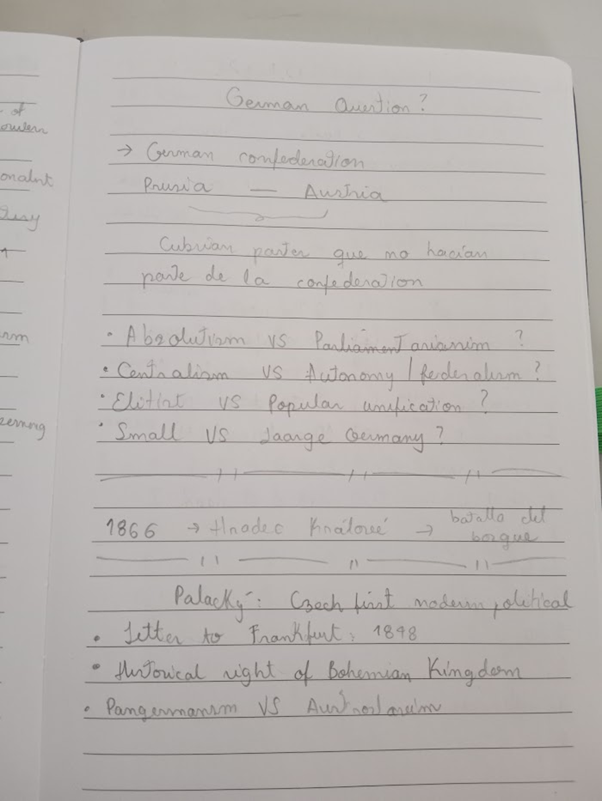 of
onalist
German Question?
→ German confederation
Prusia — Austria
Cubrian partes que no hacian
parte de la confederation
· Absolutism VS Parliamentarianism ?
· Centralism VS Autonomy / federalism ?
· Elitist VS Popular unification ?
· Small VS Laarge Germany ?
1866 → Hradec Králové → batalla del bosque
Palacký: Czech first modern political
· Letter to Frankfurt, 1848
· Historical right of Bohemian Kingdom
· Pangermanism VS Austroslavism